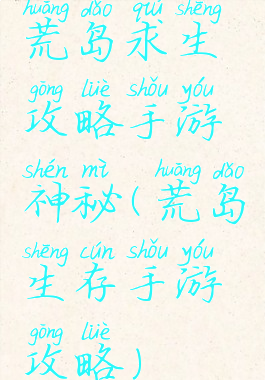 huāng dǎo qiú shēng
荒岛求生
gōng lüè shǒu yóu
攻略手游
shén mì huāng dǎo
神秘(荒岛
shēng cún shǒu yóu
生存手游
gōng lüè
攻略)